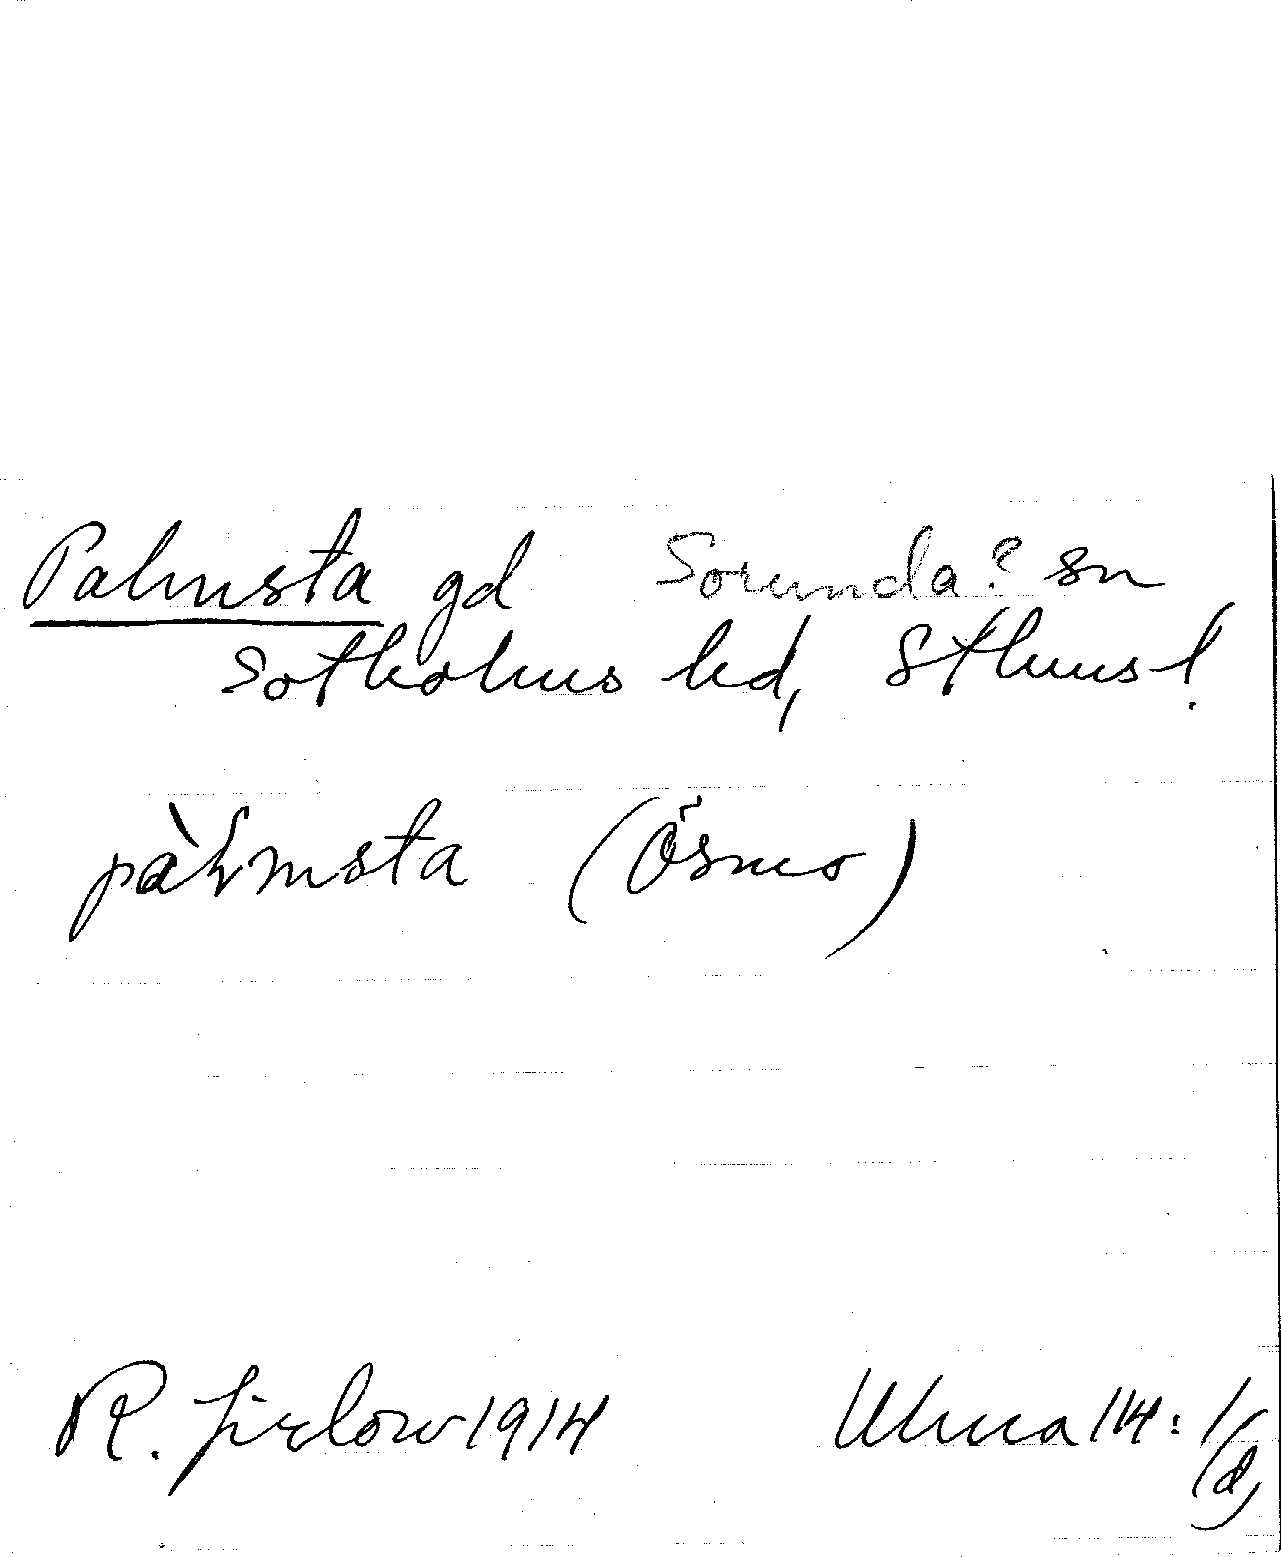 Palmsta gd Sorunda? sn
Sotholms hd, Sthms l.
pàlmsta (Ösmo)
R. Jirlow 1914 Ulma 114:1
(d)